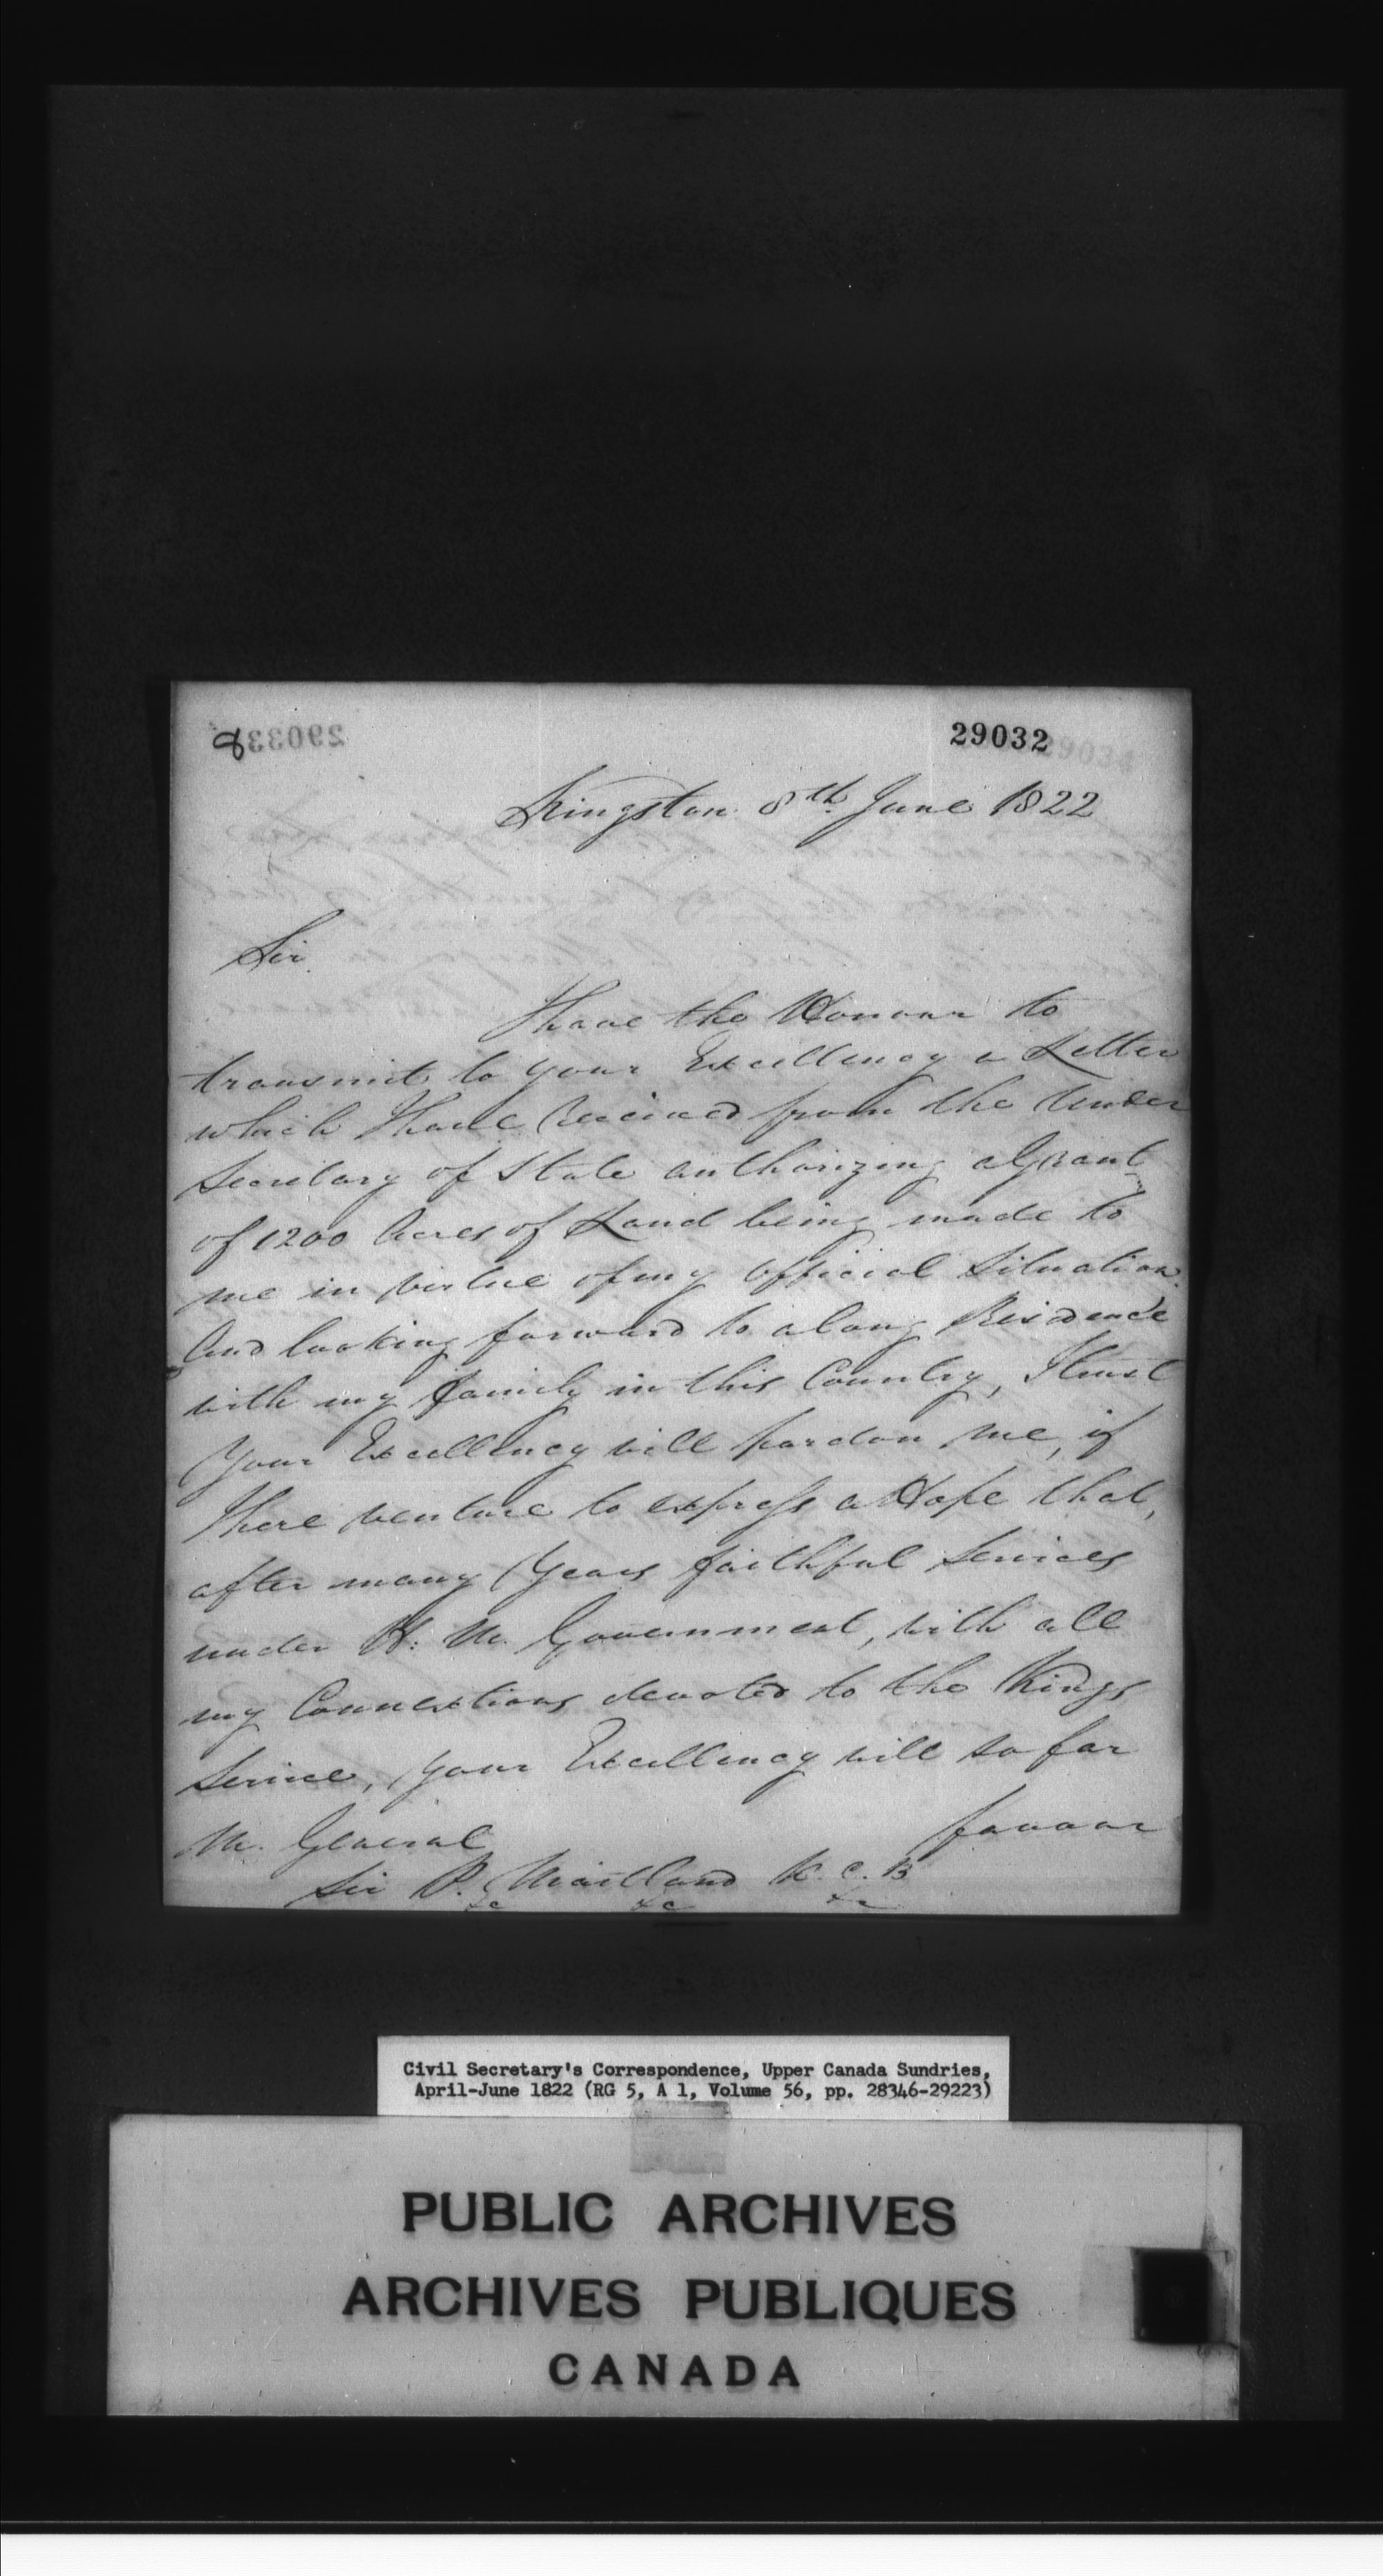 29032
Kingston 8th June 1822
Sir
I have the Honour to
transmit to your Excellency a Letter
which I have Received from the Under
Secretary of State authorizing a Grant
of 1200 Acres of Land being made to
me in virtue of my Official Situation.
And looking forward to a long Residence
with my family in this Country, I trust
Your Excellency will pardon me, if
I here venture to express a Hope that,
after many Years faithful Services
under H: M. Government, with all
my Connextions devoted to the Kings
Service, Your Excellency will so far
favour
M. General
Sir P. Maitland K. C. B
&c &c &c
Civil Secretary's Correspondence, Upper Canada Sundries,
April-June 1822 (RG 5, A 1, Volume 56, pp. 28346-29223)
PUBLIC ARCHIVES
ARCHIVES PUBLIQUES
CANADA